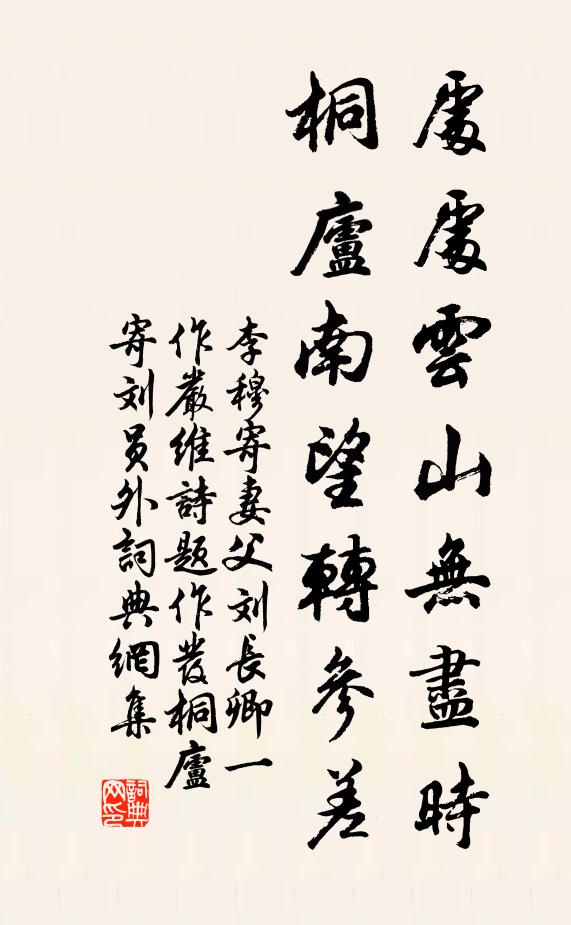 處處雲山無盡時
桐廬南望轉參差
李穆寄妻父刘長卿一
作嚴維詩題作發桐廬
寄刘員外詞典網集
詞典
网印